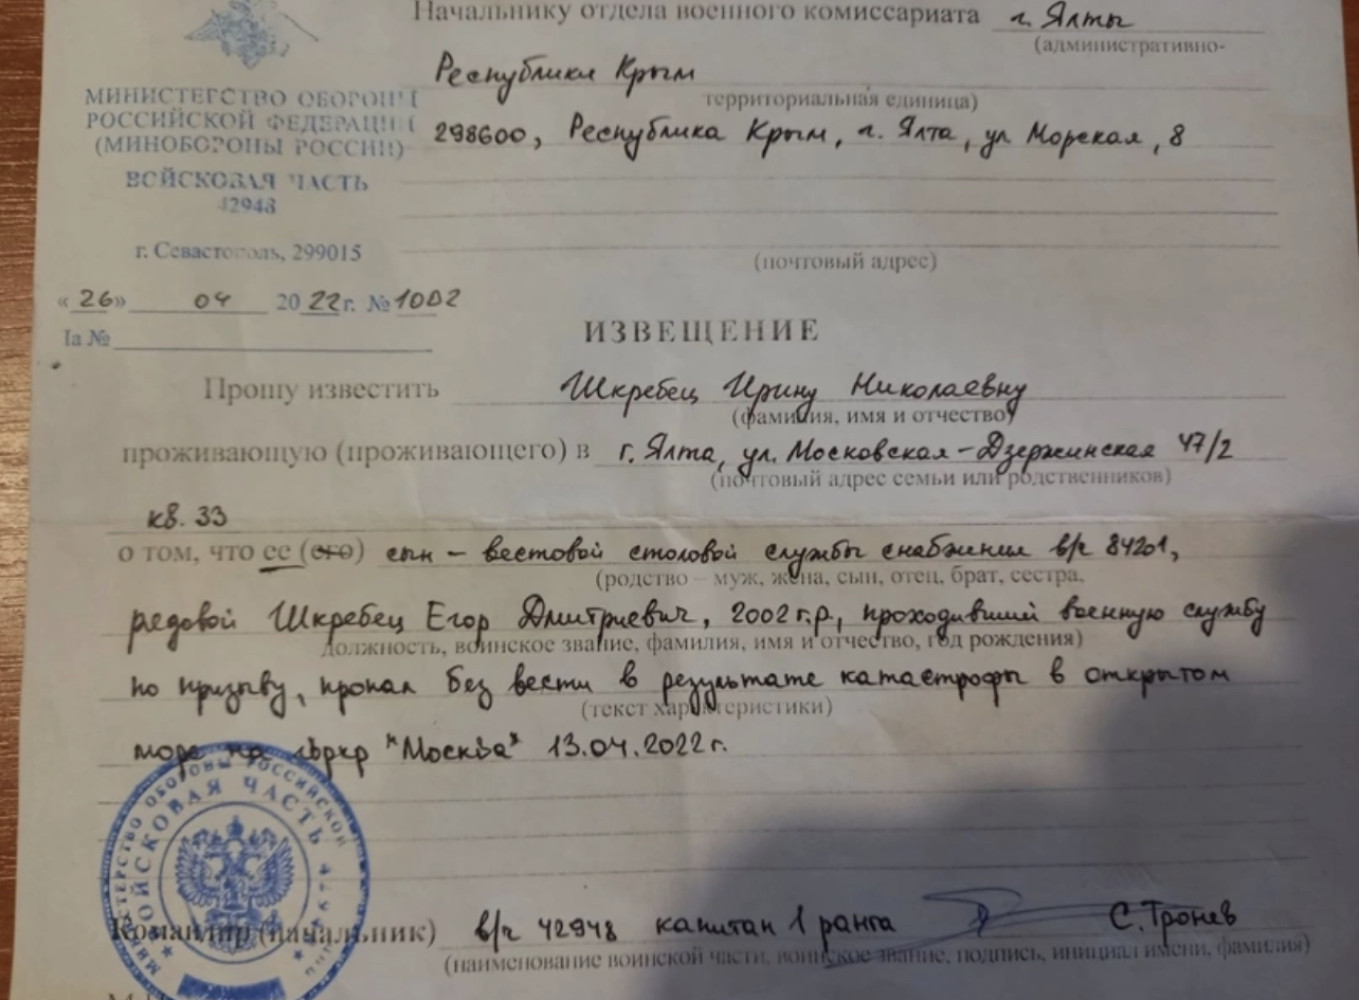 Начальнику отдела военного комиссариата г. Ялты
(административно-
Республики Крым
территориальная единица)
298600, Республика Крым, г. Ялта, ул Морская, 8
(почтовый адрес)
МИНИСТЕРСТВО ОБОРОНЫ
РОССИЙСКОЙ ФЕДЕРАЦИИ
(МИНОБОРОНЫ РОССИИ)
ВОЙСКОВАЯ ЧАСТЬ
42948
г. Севастополь, 299015
«26» 04 2022 г. № 1002
На №
ИЗВЕЩЕНИЕ
Прошу известить Шкребец Ирину Николаевну
(фамилия, имя и отчество)
проживающую (проживающего) в г. Ялта, ул. Московская-Дзержинская 47/2
(почтовый адрес семьи или родственников)
кв. 33
о том, что ее (его) сын – вестовой столовой службы снабжения в/ч 84201,
(родство – муж, жена, сын, отец, брат, сестра,
рядовой Шкребец Егор Дмитриевич, 2002 г.р., проходивший военную службу
должность, воинское звание, фамилия, имя и отчество, год рождения)
по призыву, пропал без вести в результате катастрофы в открытом
(текст характеристики)
море на гвркр "Москва" 13.04.2022 г.
ВОЙСКОВАЯ ЧАСТЬ
Командир (начальник) в/ч 42948 капитан 1 ранга С. Тронев
(наименование воинской части, воинское звание, подпись, инициал имени, фамилия)